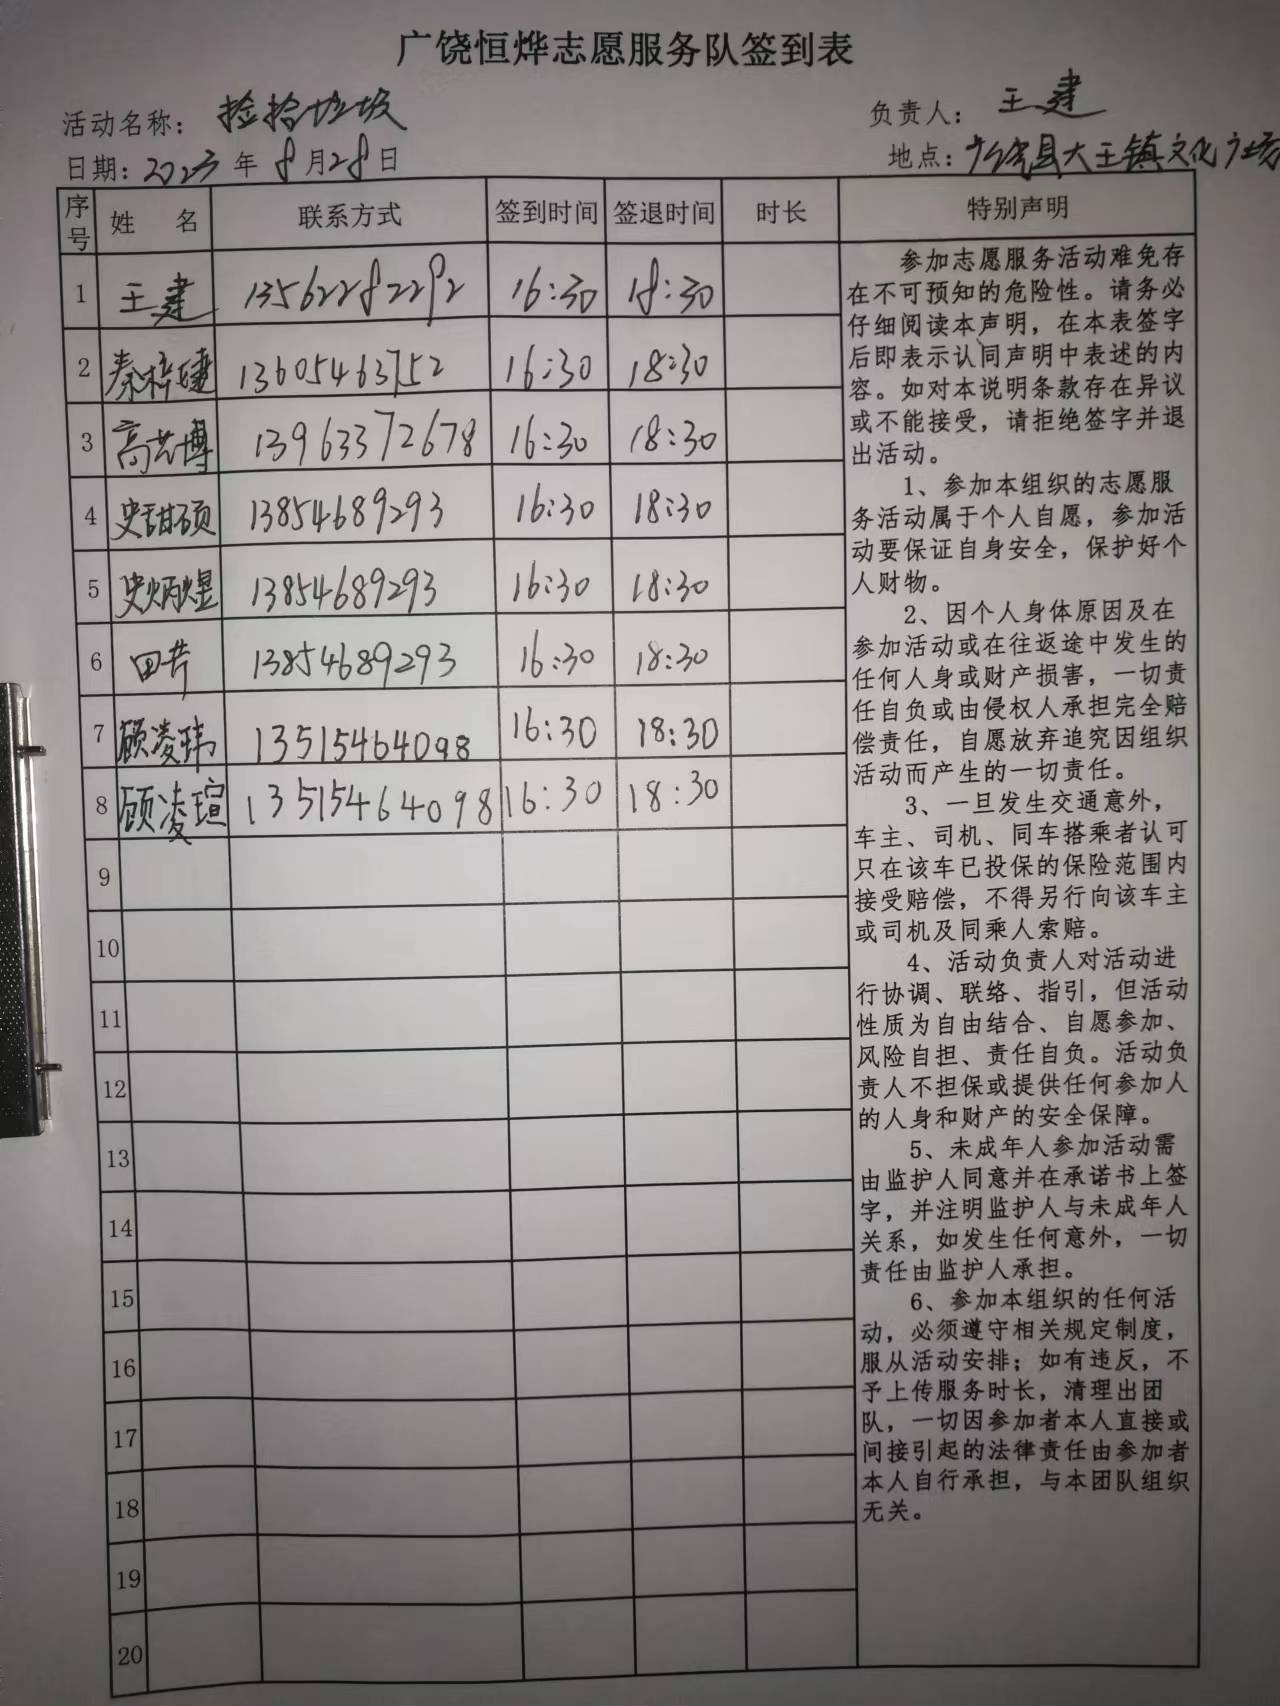 广饶恒烨志愿服务队签到表
活动名称：捡拾垃圾 负责人：王建
日期：2023年8月28日 地点：广饶县大王镇文化广场
序号 姓 名 联系方式 签到时间 签退时间 时长 特别声明
1 王建 13562282292 16:30 18:30
2 秦梓婕 13605463752 16:30 18:30
3 高艺博 13963372678 16:30 18:30
4 史甜硕 13854689293 16:30 18:30
5 史炳煜 13854689293 16:30 18:30
6 田芹 13854689293 16:30 18:30
7 顾凌玮 13515464098 16:30 18:30
8 顾凌瑄 13515464098 16:30 18:30
9
10
11
12
13
14
15
16
17
18
19
20
参加志愿服务活动难免存
在不可预知的危险性。请务必
仔细阅读本声明，在本表签字
后即表示认同声明中表述的内
容。如对本说明条款存在异议
或不能接受，请拒绝签字并退
出活动。
1、参加本组织的志愿服
务活动属于个人自愿，参加活
动要保证自身安全，保护好个
人财物。
2、因个人身体原因及在
参加活动或在往返途中发生的
任何人身或财产损害，一切责
任自负或由侵权人承担完全赔
偿责任，自愿放弃追究因组织
活动而产生的一切责任。
3、一旦发生交通意外，
车主、司机、同车搭乘者认可
只在该车已投保的保险范围内
接受赔偿，不得另行向该车主
或司机及同乘人索赔。
4、活动负责人对活动进
行协调、联络、指引，但活动
性质为自由结合、自愿参加、
风险自担、责任自负。活动负
责人不担保或提供任何参加人
的人身和财产的安全保障。
5、未成年人参加活动需
由监护人同意并在承诺书上签
字，并注明监护人与未成年人
关系，如发生任何意外，一切
责任由监护人承担。
6、参加本组织的任何活
动，必须遵守相关规定制度，
服从活动安排；如有违反，不
予上传服务时长，清理出团
队，一切因参加者本人直接或
间接引起的法律责任由参加者
本人自行承担，与本团队组织
无关。